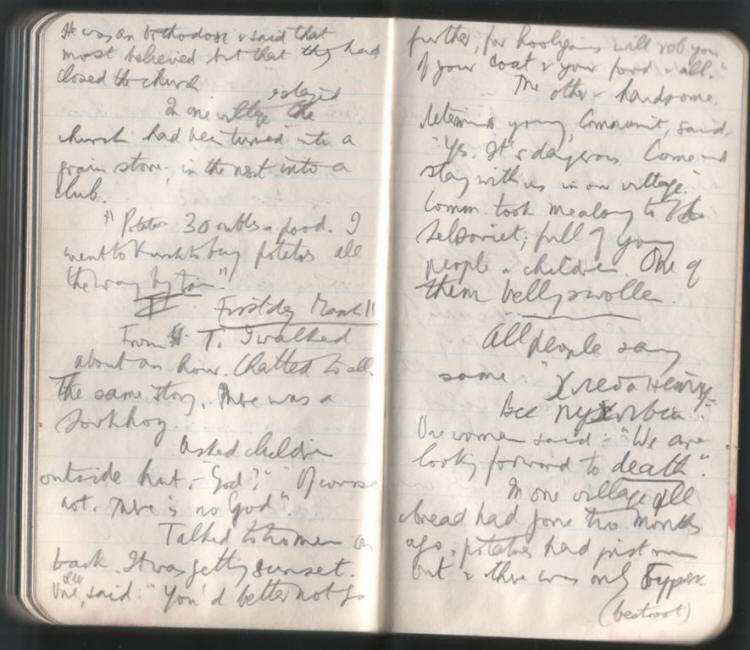 He was an Orthodox & said that
most believed but that they had
closed the church
In one village I stayed the
church had been turned into a
grain store, in the next into a
club.
30 roubles a pood. I
went to to buy potatoes all
the way by train."
First day March 11
From T. I walked
about an hour. Chatted to all.
The same story. There was a
Sovkhoz
Asked children
outside hut, - "God?" "Of course
not. There is no God".
Talked to two men on
back. It was getting sunset.
One, said: "You'd better not go
further, for hooligans will rob you
of your coat & your food & all."
The other - handsome,
young, Communist, said
"Yes. It's dangerous. Come and
stay with us in our village."
Comm. took me along to the
Selsoviet; full of young
people & children. One of
them belly swollen
All people say
same "
One woman said: "We are
looking forward to death".
In one village all
bread had gone two months
ago, potatoes had just run
out & there was only
(beetroot)